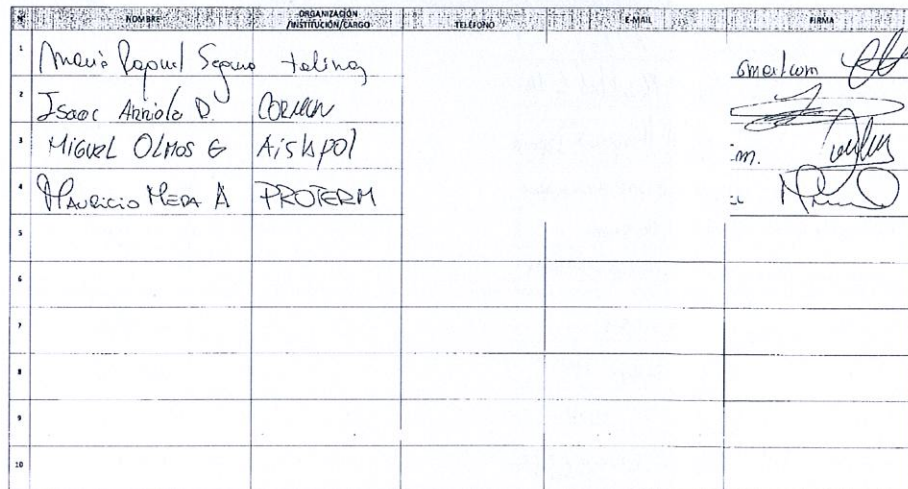 Nº NOMBRE ORGANIZACIÓN /INSTITUCIÓN/CARGO TELÉFONO E-MAIL FIRMA
1 Maria Raquel gmail.com
2 Isaac Arriola D.
3 MIGUEL OLMOS G Aislapol
4 MAURICIO MERA A PROTERM
5
6
7
8
9
10